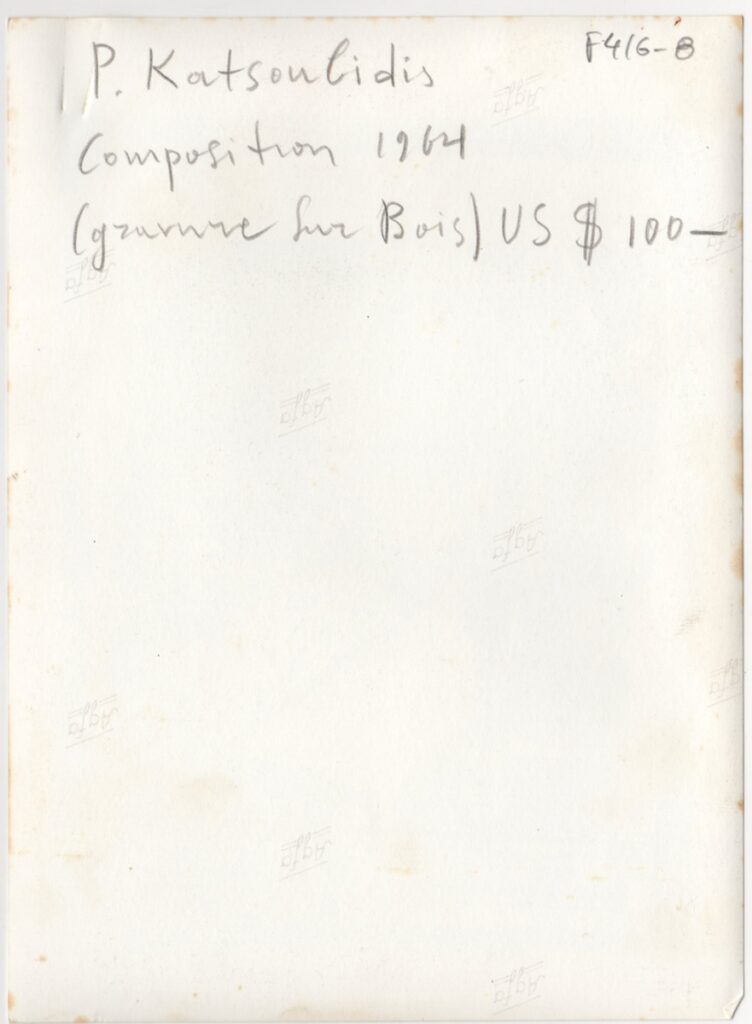 F416-8
P. Katsoulidis
Composition 1964
(gravure sur Bois) US $ 100-
Agfa
Agfa
Agfa
Agfa
Agfa
Agfa
Agfa
Agfa